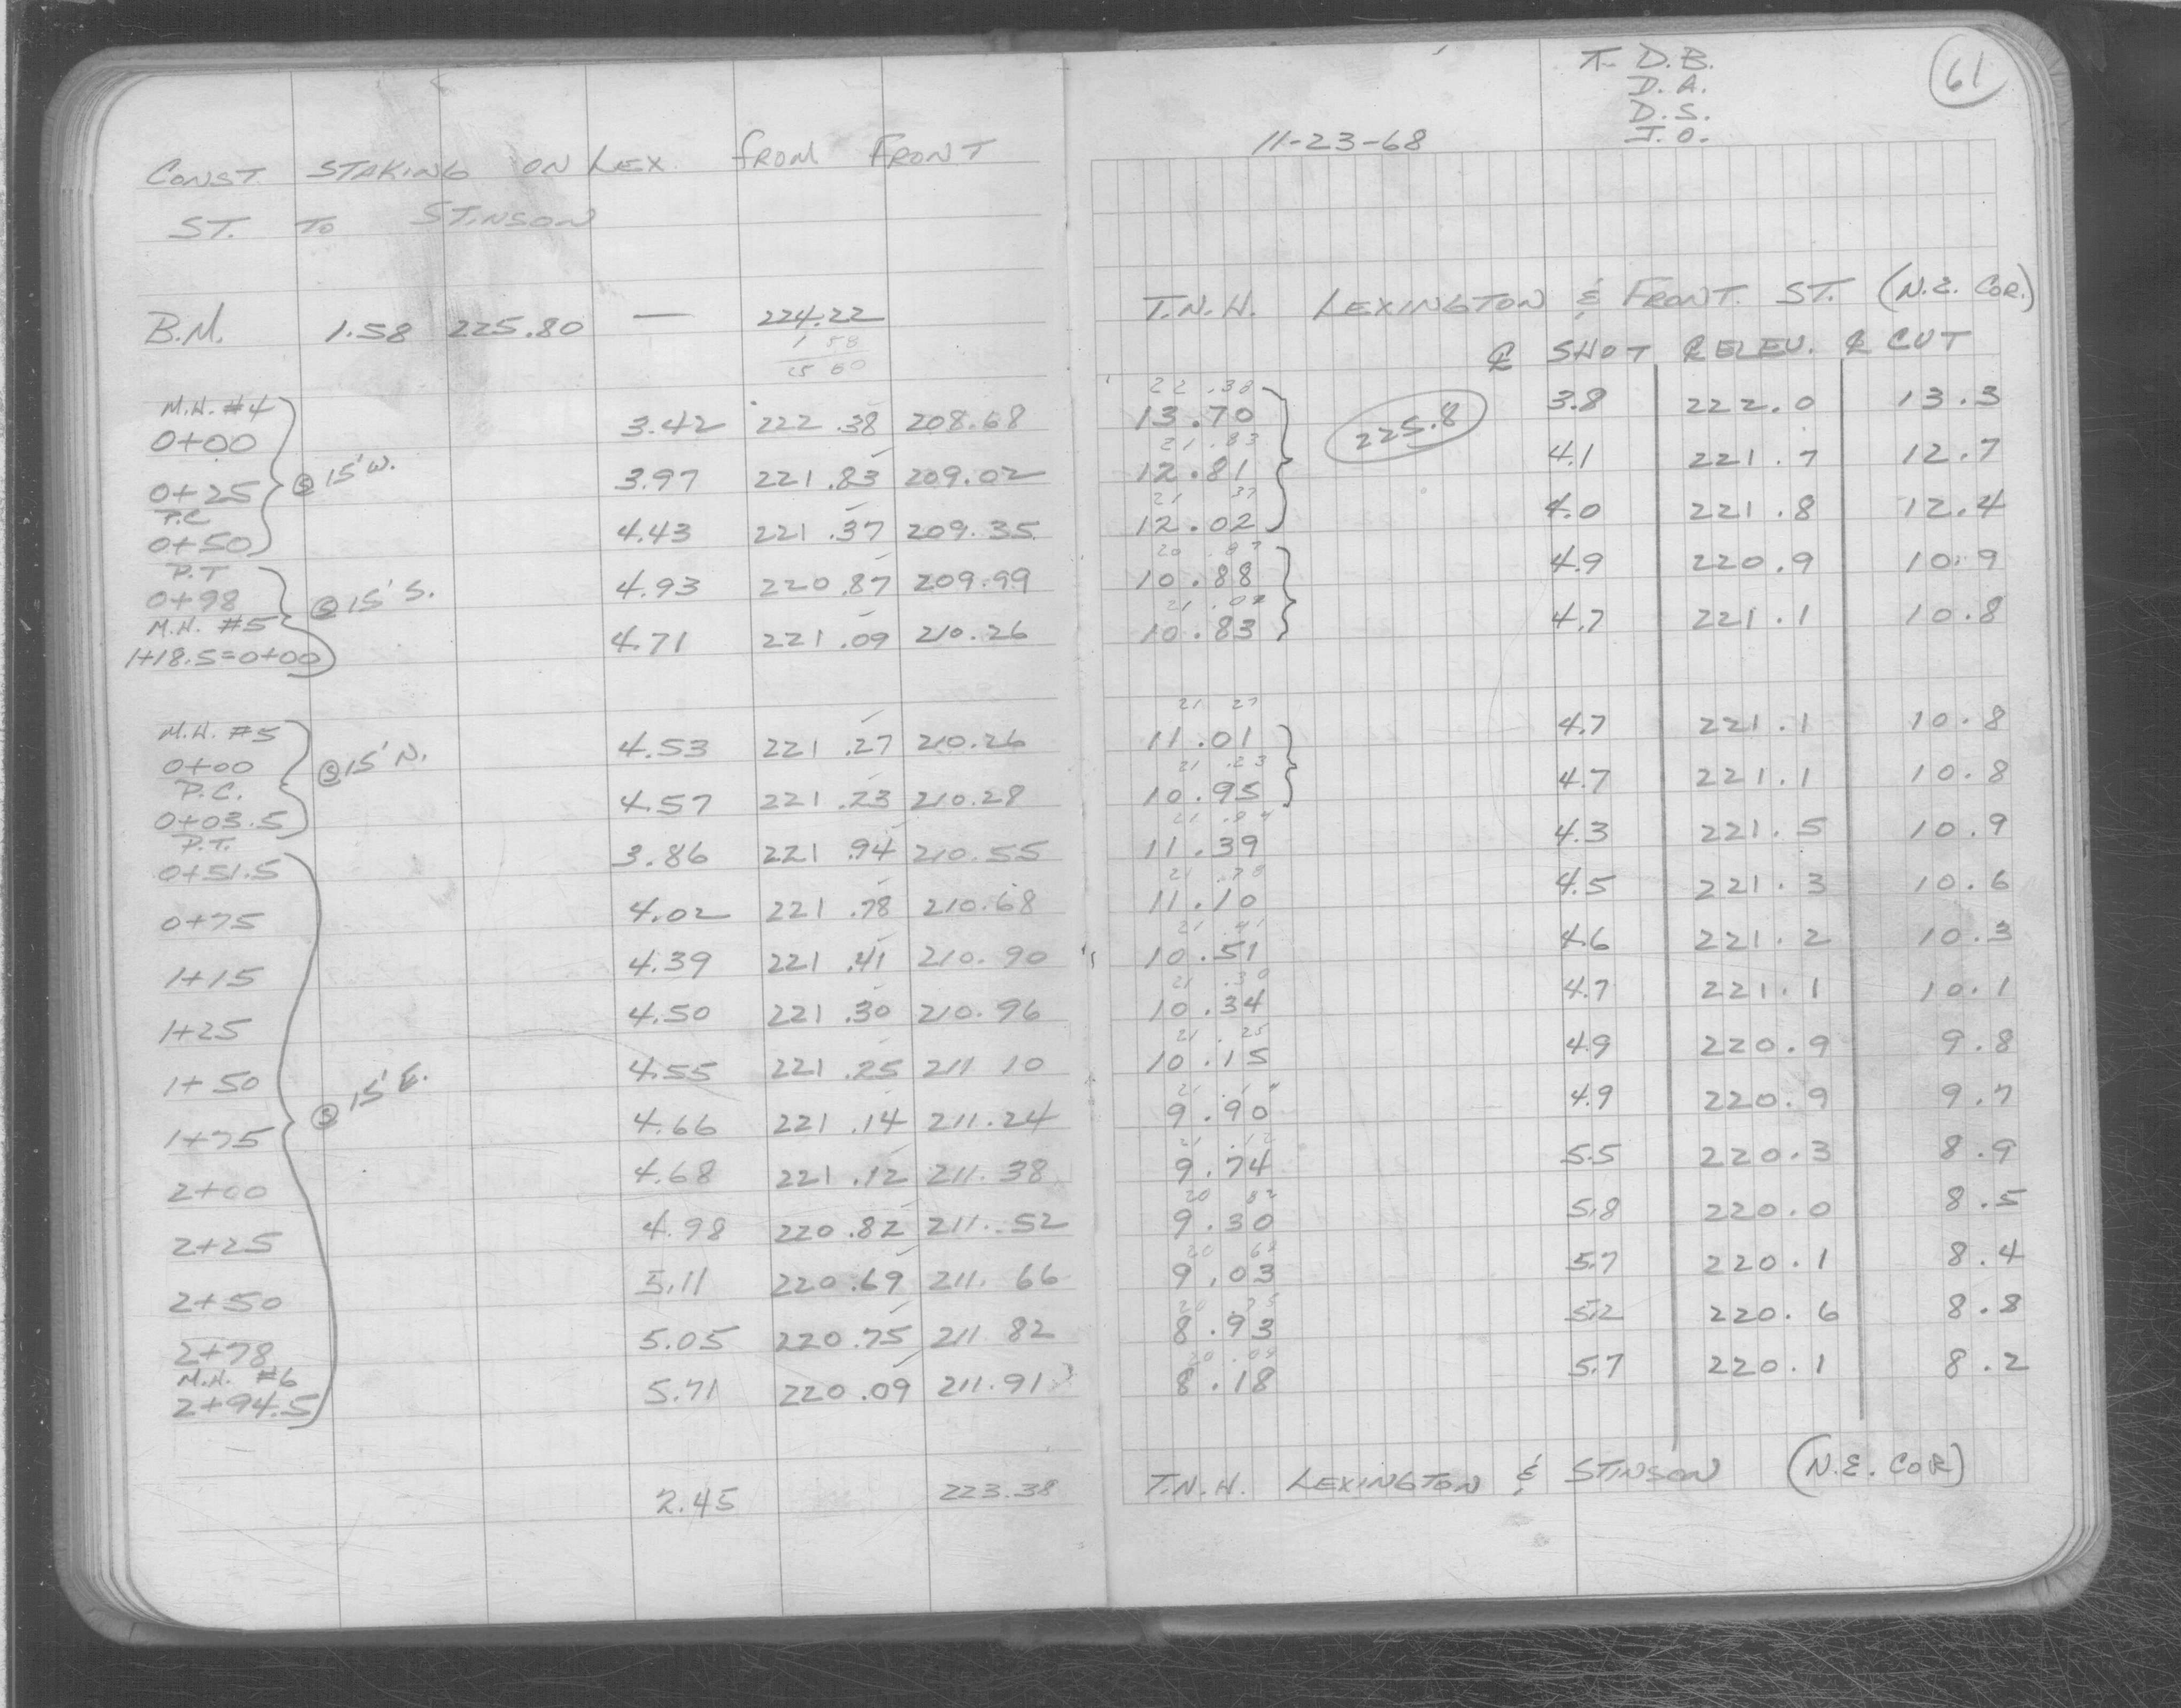 CONST. STAKING ON LEX. FROM FRONT
ST. TO STINSON
B.M. 1.58 225.80 — 224.22
1 58
25 80
M.H. #4
0+00 3.42 222.38 208.68
@ 15' W.
0+25 3.97 221.83 209.02
P.C.
0+50 4.43 221.37 209.35
P.T
0+98 @ 15' S. 4.93 220.87 209.99
M.H. #5
1+18.5=0+00 4.71 221.09 210.26
M.H. #5
0+00 @ 15' N. 4.53 221.27 210.26
P.C.
0+03.5 4.57 221.23 210.28
P.T.
0+51.5 3.86 221.94 210.55
0+75 4.02 221.78 210.68
1+15 4.39 221.41 210.90
1+25 4.50 221.30 210.96
1+50 4.55 221.25 211 10
@ 15' E.
1+75 4.66 221.14 211.24
2+00 4.68 221.12 211.38
2+25 4.98 220.82 211.52
2+50 5.11 220.69 211.66
2+78 5.05 220.75 211 82
M.H. #6
2+94.5 5.71 220.09 211.91
2.45 223.38
61
T. D.B.
D.A.
D.S.
J.O.
11-23-68
T.N.H. LEXINGTON & FRONT. ST. (N.E. COR.)
℄ SHOT ℄ ELEV. ℄ CUT
22 .38
13.70 225.8 3.8 222.0 13.3
21 .83
12.81 4.1 221.7 12.7
21 37
12.02 4.0 221.8 12.4
20 .87
10.88 4.9 220.9 10.9
21 .09
10.83 4.7 221.1 10.8
21 27
11.01 4.7 221.1 10.8
21 .23
10.95 4.7 221.1 10.8
21 .94
11.39 4.3 221.5 10.9
21 .78
11.10 4.5 221.3 10.6
21 .41
10.51 4.6 221.2 10.3
21 .30
10.34 4.7 221.1 10.1
21 .25
10.15 4.9 220.9 9.8
21 .14
9.90 4.9 220.9 9.7
21 .12
9.74 5.5 220.3 8.9
20 82
9.30 5.8 220.0 8.5
20 69
9.03 5.7 220.1 8.4
20 .75
8.93 5.2 220.6 8.8
20 .09
8.18 5.7 220.1 8.2
T.N.H. LEXINGTON & STINSON (N.E. COR)